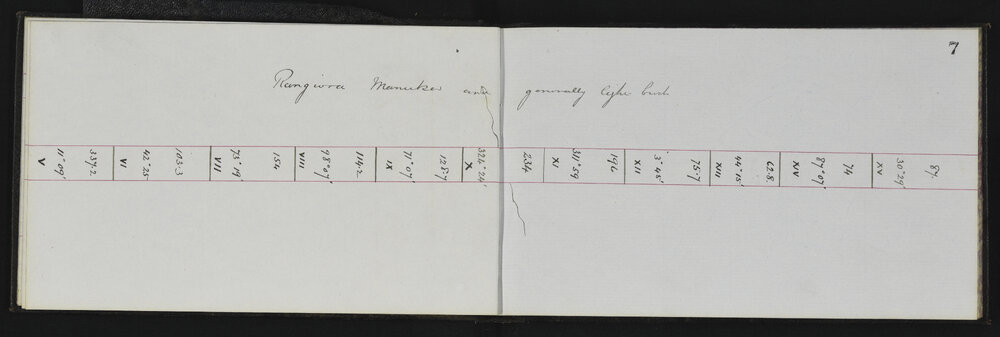 7
Rangiora Manuka and generally light bush
V
11°09'
337.2
VI
42°25'
103.3
VII
75°19'
154
VIII
98°07'
114.2
IX
71°07'
128.7
X
324°24'
234
XI
311°59'
196
XII
3°45'
75.7
XIII
44°15'
62.8
XIV
87°07'
74
XV
30°29'